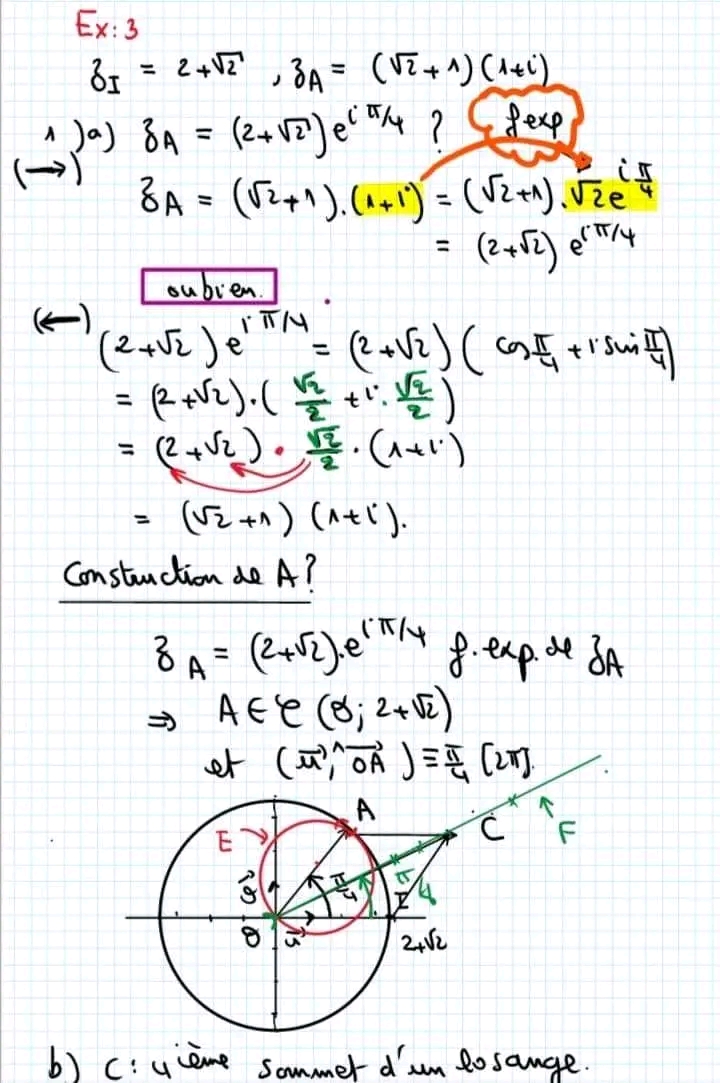 Ex: 3
z_I = 2+√2 , z_A = (√2+1)(1+i)
1)a) z_A = (2+√2)e^{iπ/4} ? f exp
(→)
z_A = (√2+1).(1+i) = (√2+1).√2e^{iπ/4}
= (2+√2) e^{iπ/4}
oubien.
(←)
(2+√2)e^{iπ/4} = (2+√2)(cos π/4 + i sin π/4)
= (2+√2).(√2/2 + i.√2/2)
= (2+√2).√2/2.(1+i)
= (√2+1)(1+i).
Construction de A?
z_A = (2+√2).e^{iπ/4} f.exp.de z_A
⇒ A∈𝒞(O; 2+√2)
et (u⃗,^OA⃗) ≡ π/4 [2π].
A
E
C
F
v⃗
π/4
π
4
I
O
u⃗
2+√2
b) C: 4ième sommet d'un losange.